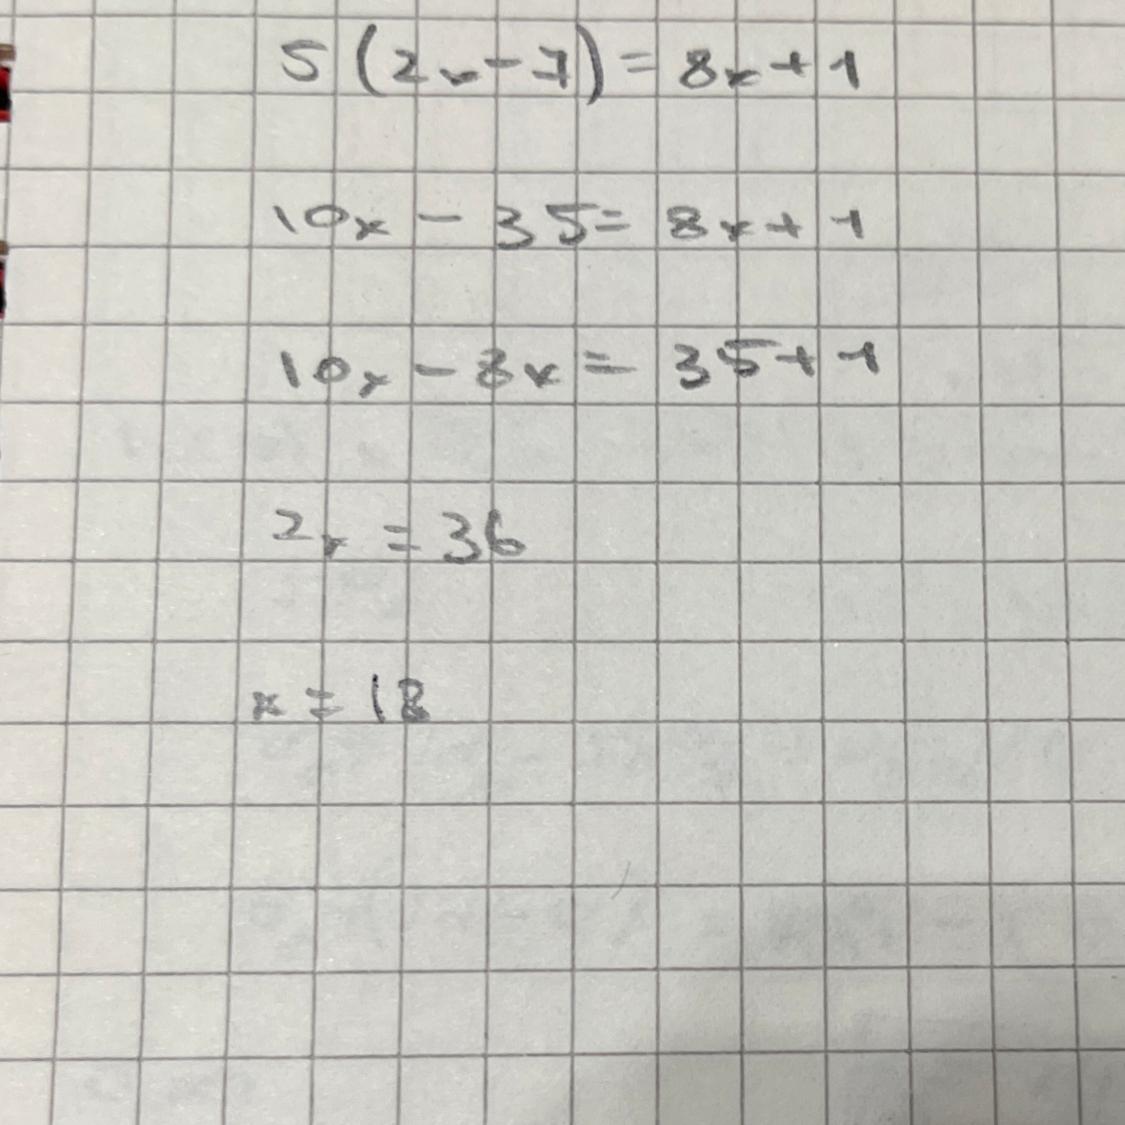 5(2x-7)=8x+1
10x-35=8x+1
10x-8x=35+1
2x=36
x=18